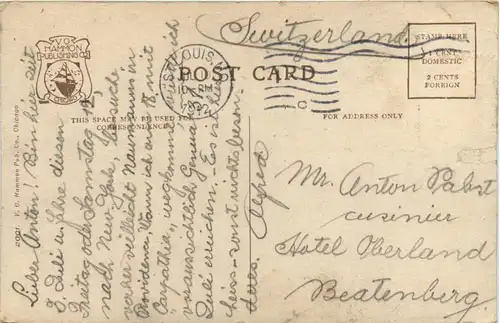 Switzerland.
V.O. HAMMON
PUBLISHING CO.
CHICAGO
ST LOUIS
1912
POST CARD
STAMP HERE
1 CENT
DOMESTIC
2 CENTS
FOREIGN
THIS SPACE MAY BE USED FOR
CORRESPONDENCE
FOR ADDRESS ONLY
2001. V. O. Hammon Pub. Co., Chicago
Lieber Anton! Bin hier seit
3. Juli u. fahre diesen
Freitag oder Samstag
nach New-York, besuche
vorher vielleicht Naumann in
Providence. Wann ich am 18. mit
"Carpathia" wegkomme, würde ich
voraussichtlich Genua am 31.
Juli erreichen. Es ist hier
heiss - sonst nichts beson-
deres.
Alfred
Mr. Anton Pabst
cuisinier
Hotel Oberland
Beatenberg.